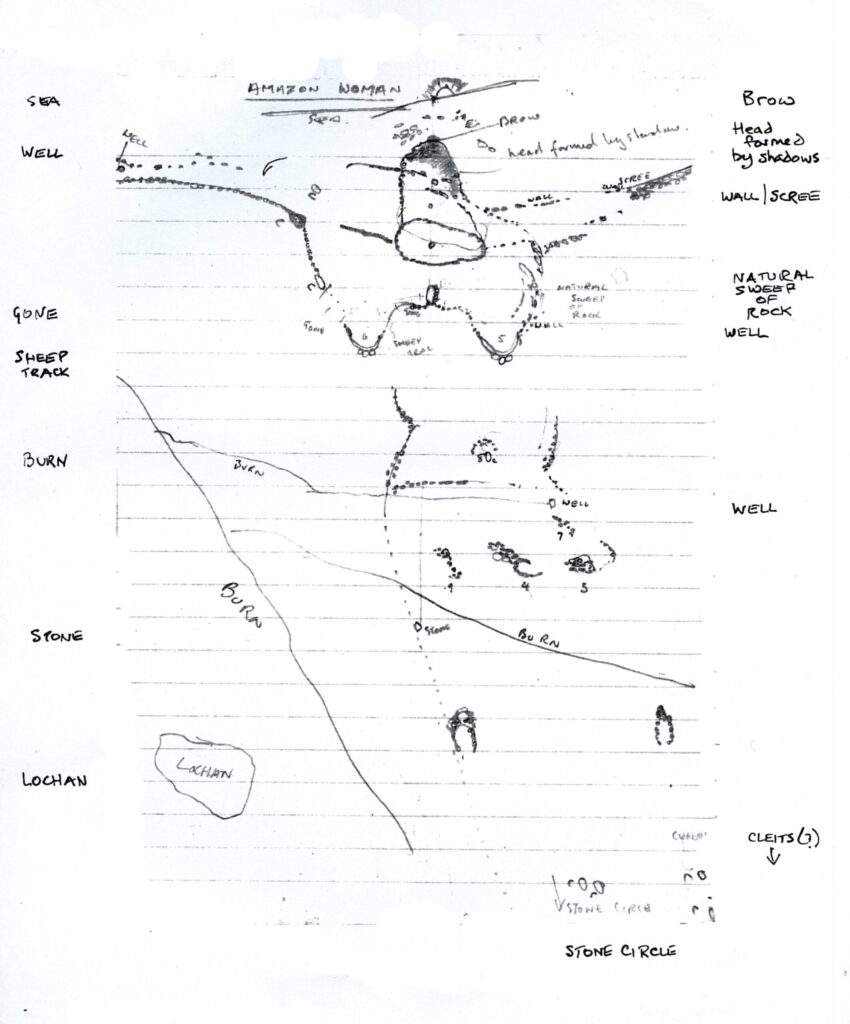 AMAZON WOMAN
SEA
SEA
BROW
BROW
WELL
WELL
head formed by shadow.
Head
formed
by shadows
SCREE
WALL
WALL/SCREE
NATURAL
SWEEP
OF
ROCK
NATURAL
SWEEP
OF
ROCK
GONE
GONE
WALL
WELL
6
5
SHEEP
SHEEP
TRACK
BURN
BURN
WELL
WELL
7
BURN
4
STONE
STONE
BURN
LOCHAN
LOCHAN
CLEITS(?)
STONE CIRCLE
STONE CIRCLE